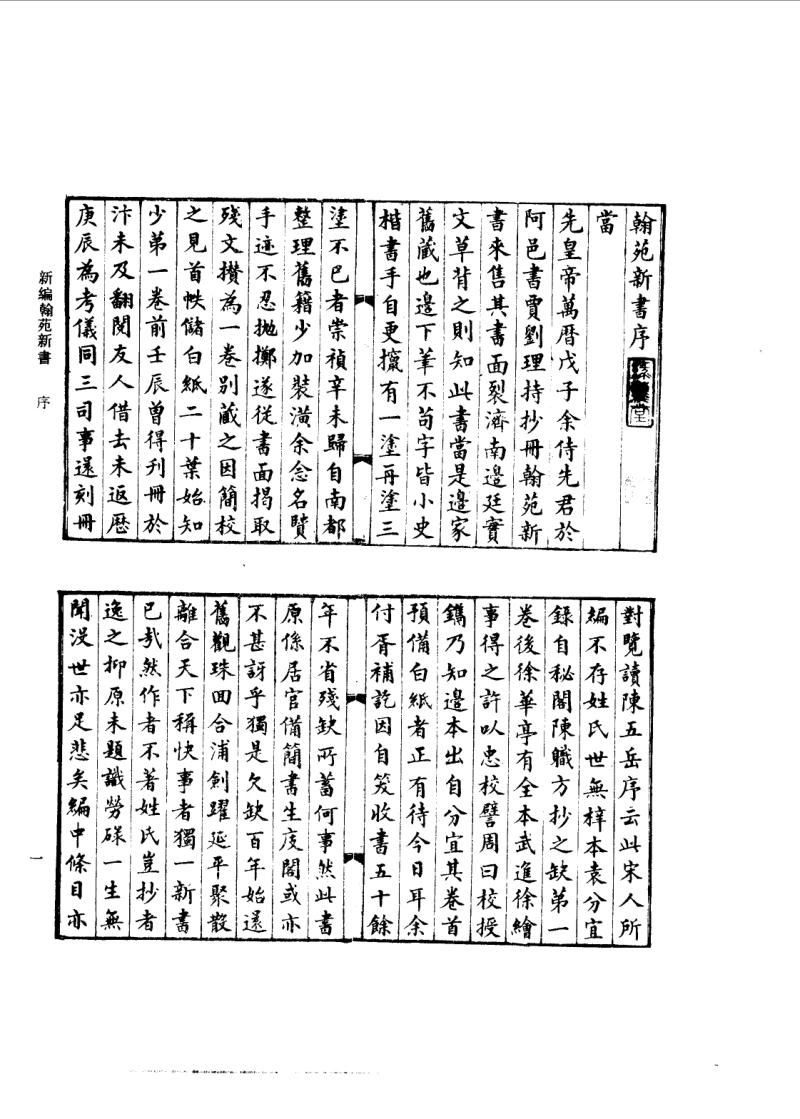 翰苑新書序
當
先皇帝萬曆戊子余侍先君於
阿邑書賈劉理持抄冊翰苑新
書來售其書面裂濟南邊廷實
文草背之則知此書當是邊家
舊蔵也邊下筆不茍字皆小史
楷書手自更攛有一塗再塗三
塗不已者崇禎辛未歸自南都
整理舊籍少加裝潢余念名賢
手迹不忍拋擲遂從書面揭取
殘文攢為一卷別蔵之因簡校
之見首帙儲白紙二十葉始知
少第一卷前壬辰曾得刋冊於
汴未及翻閱友人借去未返歷
庚辰為考儀同三司事還刻冊
對覽讀陳五岳序云此宋人所
編不存姓氏世無梓本袁分宜
錄自秘閣陳職方抄之缺第一
卷後徐華亭有全本武進徐繪
事得之許以忠校讐周曰校授
鐫乃知邊本出自分宜其卷首
預備白紙者正有待今日耳余
付胥補訖因自笑收書五十餘
年不省殘缺所蓄何事然此書
原係居官備簡書生庋閣或亦
不甚訝乎獨是欠缺百年始還
舊觀珠囬合浦劍躍延平聚散
離合天下稱快事者獨一新書
已㢤然作者不著姓氏豈抄者
逸之抑原未題識勞碌一生無
聞沒世亦足悲矣編中條目亦
新編翰苑新書 序
一